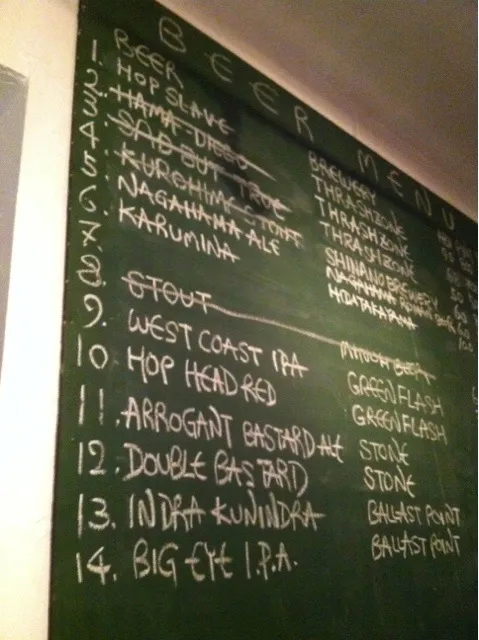 BEER MENU
BEER BREWERY
1. HOP SLAVE THRASHZONE
2. HAMA-DIEGO THRASHZONE
3. SAD BUT TRUE THRASHZONE
4. KUROHIME STOUT SHINANO BREWERY
5. NAGAHAMA ALE NAGAHAMA ROMAN BEER
6. KARUMINA HIDATAKAYAMA
7.
8. STOUT MINOH BEER
9. WEST COAST IPA GREENFLASH
10 HOP HEAD RED GREENFLASH
11. ARROGANT BASTARD ALE STONE
12. DOUBLE BASTARD STONE
13. INDRA KUNINDRA BALLAST POINT
14. BIG EYE I.P.A. BALLAST POINT